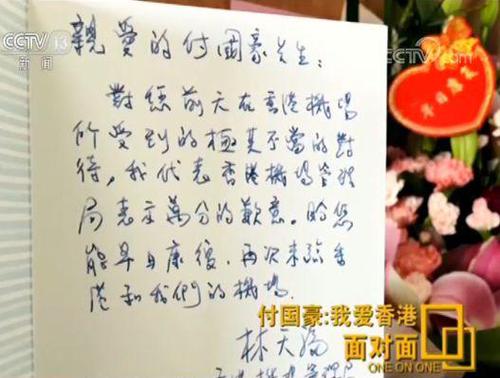 CCTV 13
新闻
CCTV.com
親愛的付國豪先生：
對您前天在香港機場
所受到的極其不當的對
待，我代表香港機場管理
局表示萬分的歉意。盼您
能早日康復，再次來臨香
港和我們的機場.
林天福
早日康复
付国豪:我爱香港
面对面
ONE ON ONE